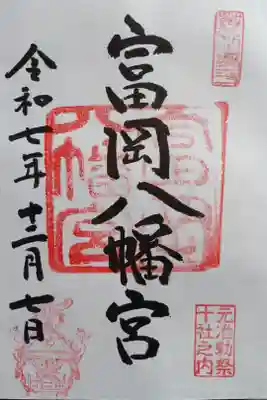 富岡八幡宮
令和七年十二月七日
元准勅祭
十社之内